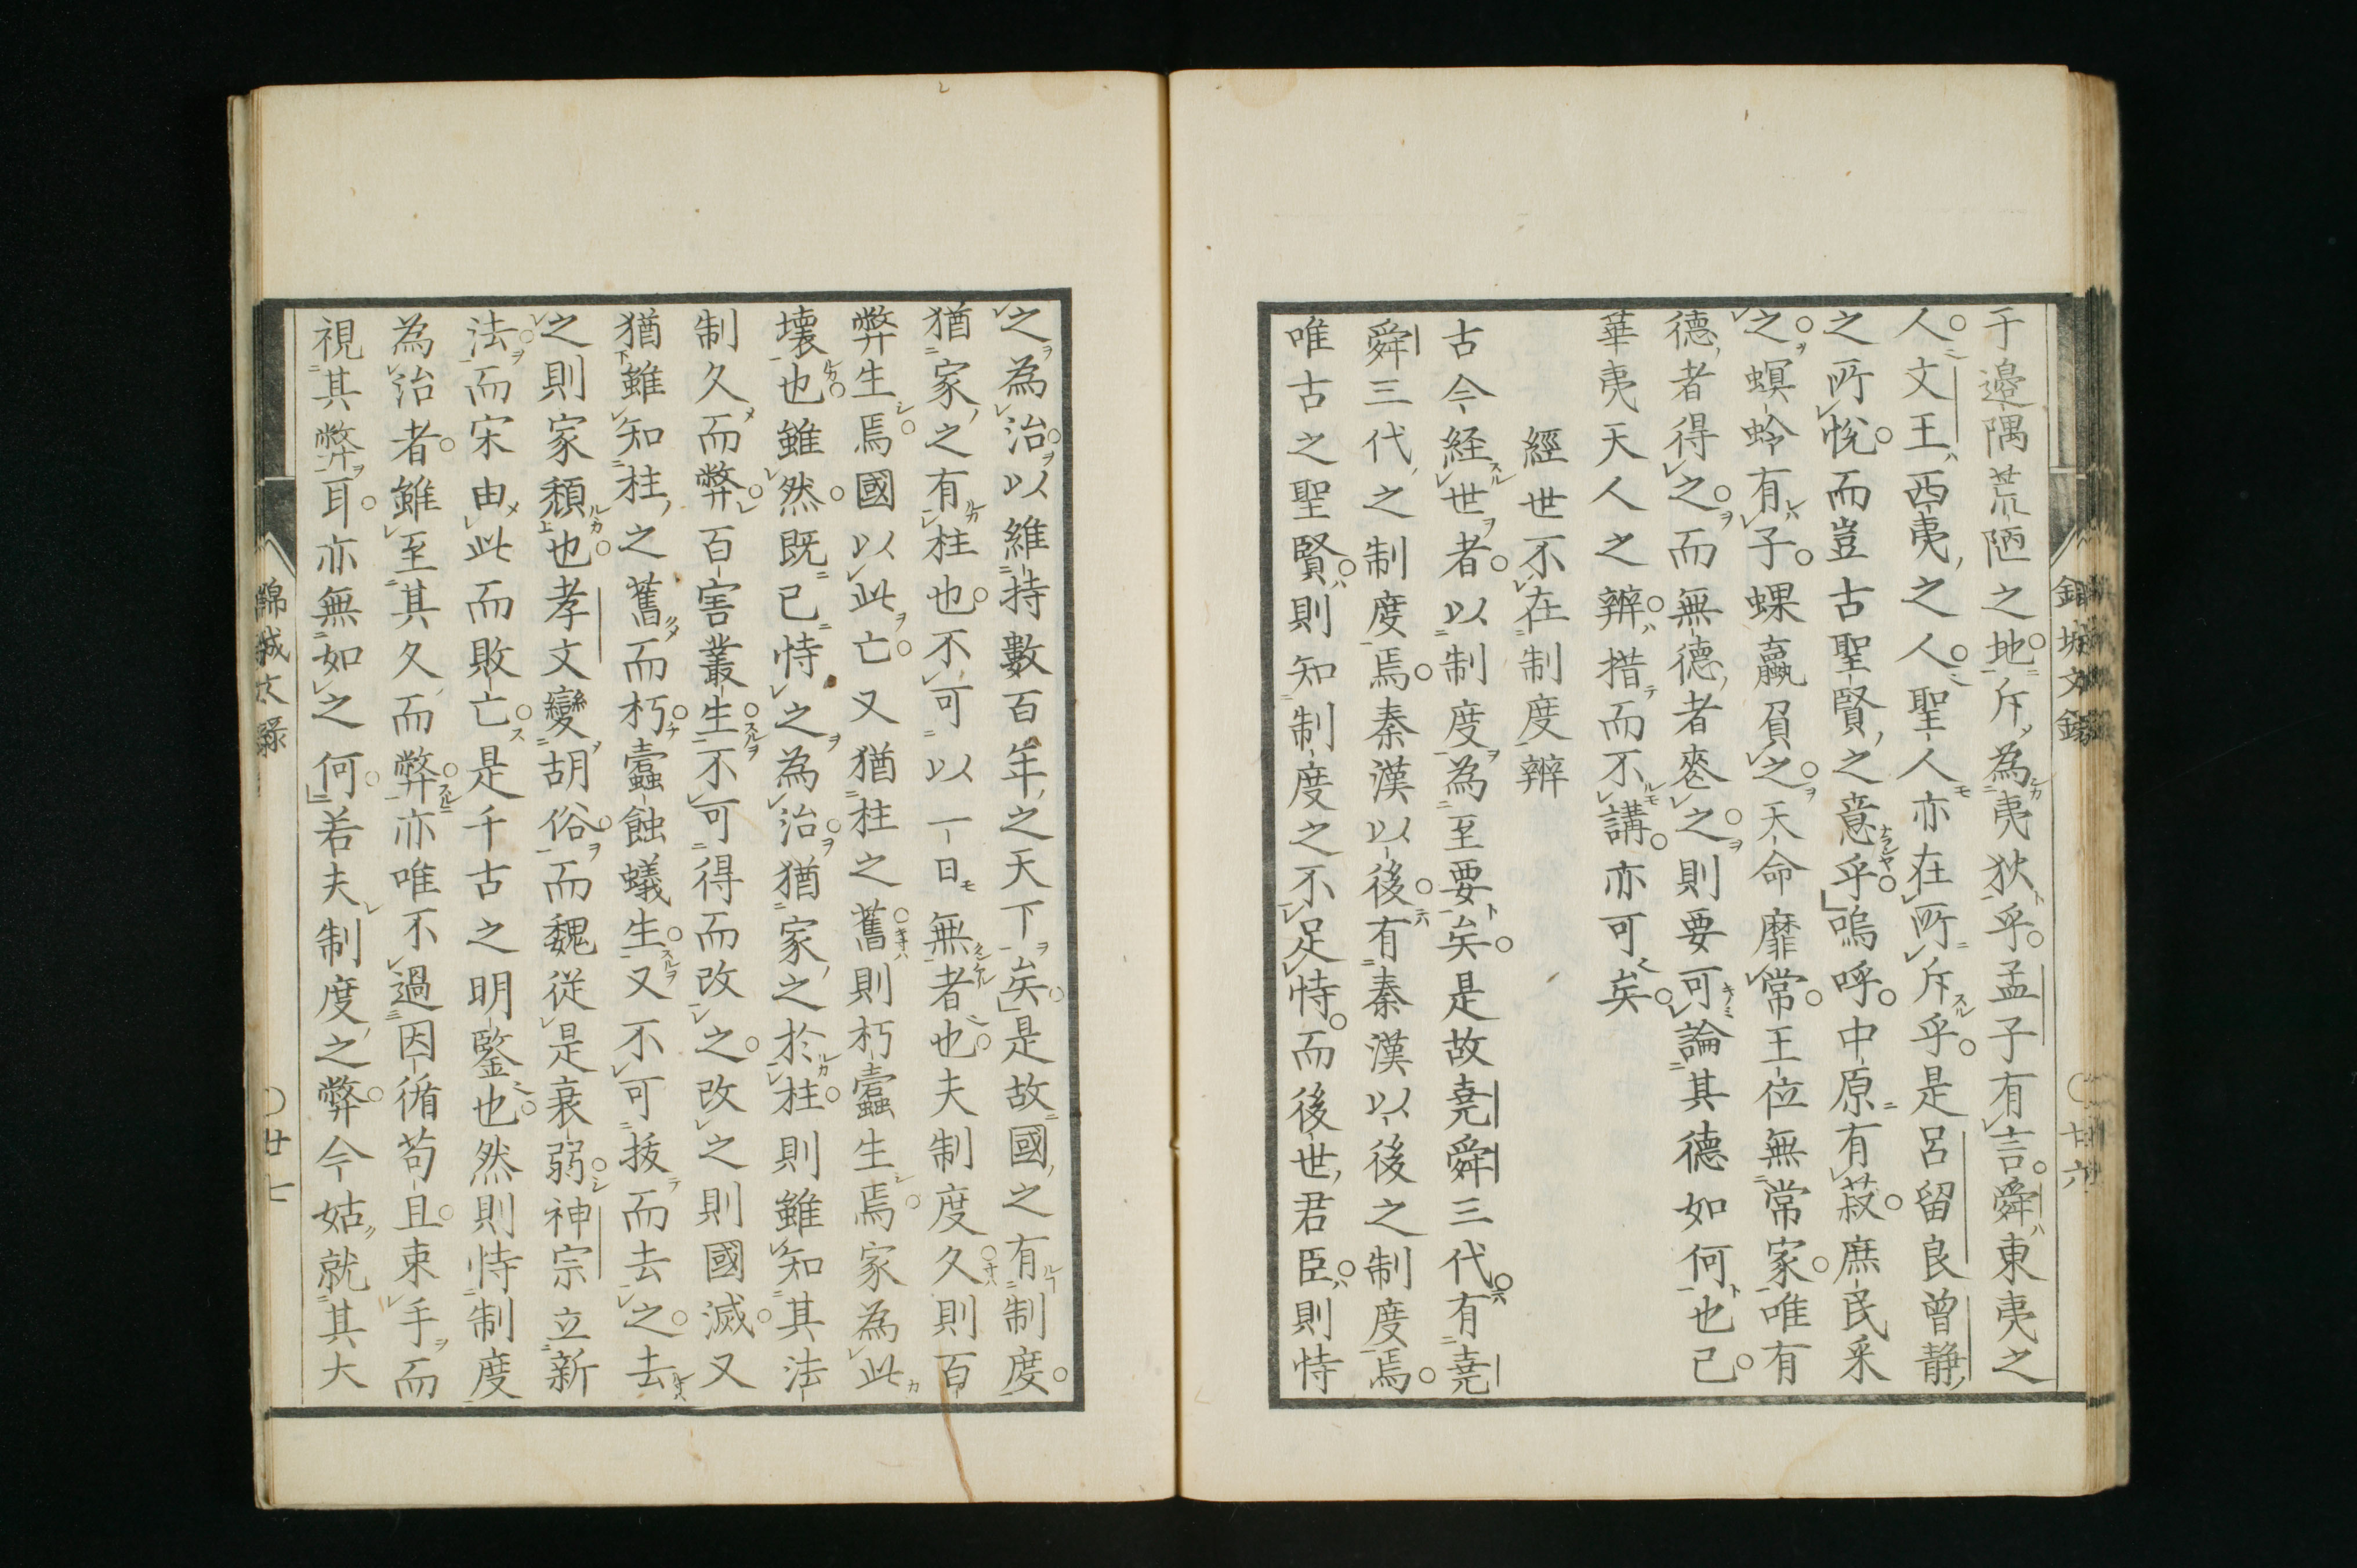 于邊隅荒陋之地斥為夷狄乎孟子有言舜東夷之
人文王西夷之人聖人亦在所斥乎是呂留良曾静
之所悅而豈古聖賢之意乎嗚呼中原有菽庶民采
之螟蛉有子蜾蠃負之天命靡常王位無常家唯有
德者得之而無德者喪之則要可論其德如何也已
華夷天人之辨措而不講亦可矣
經世不在制度辨
古今経世者以制度為至要矣是故堯舜三代有堯
舜三代之制度焉秦漢以後有秦漢以後之制度焉
唯古之聖賢則知制度之不足恃而後世君臣則恃
之為治以維持數百年之天下矣是故國之有制度
猶家之有柱也不可以一日無者也夫制度久則百
弊生焉國以此亡又猶柱之舊則朽蠹生焉家為此
壊也雖然既已恃之為治猶家之於柱則雖知其法
制久而弊百害叢生不可得而改之改之則國滅又
猶雖知柱之舊而朽蠹蝕蟻生又不可拔而去之去
之則家頹也孝文變胡俗而魏従是衰弱神宗立新
法而宋由此而敗亡是千古之明鑒也然則恃制度
為治者雖至其久而弊亦唯不過因循苟且束手而
視其弊耳亦無如之何若夫制度之弊今姑就其大
錦城文録
〇廿六
錦城文録
〇廿七